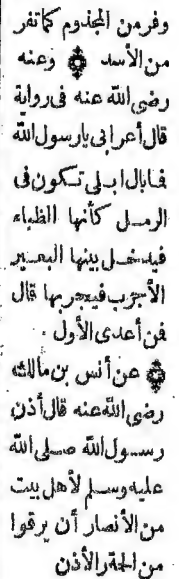 وفر من المجذوم كما تفر
من الأسد ۞ وعنه
رضى الله عنه فى رواية
قال أعرابى يارسول الله
فما بال ابلى تكون فى
الرمل كأنها الظباء
فيدخل بينها البعير
الأجرب فيجربها قال
فمن أعدى الأول .
۞ عن أنس بن مالك
رضى الله عنه قال أذن
رسول الله صلى الله
عليه وسلم لأهل بيت
من الأنصار أن يرقوا
من الحمة والأذن